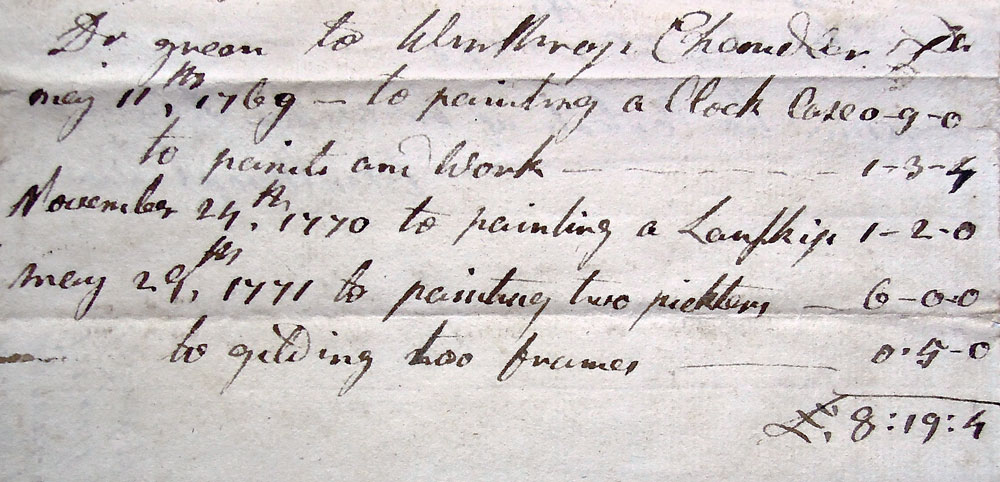 Dr green to Winthrop Chandler Dr
may 11th, 1769 – to painting a Clock Case 0-9-0
to paints and Work – – – – – – 1-3-4
November 24th, 1770 to painting a Lanskip 1-2-0
may 29th, 1771 to painting two pickters – 6-0-0
to gilding two frames —— 0-5-0
£, 8:19:4